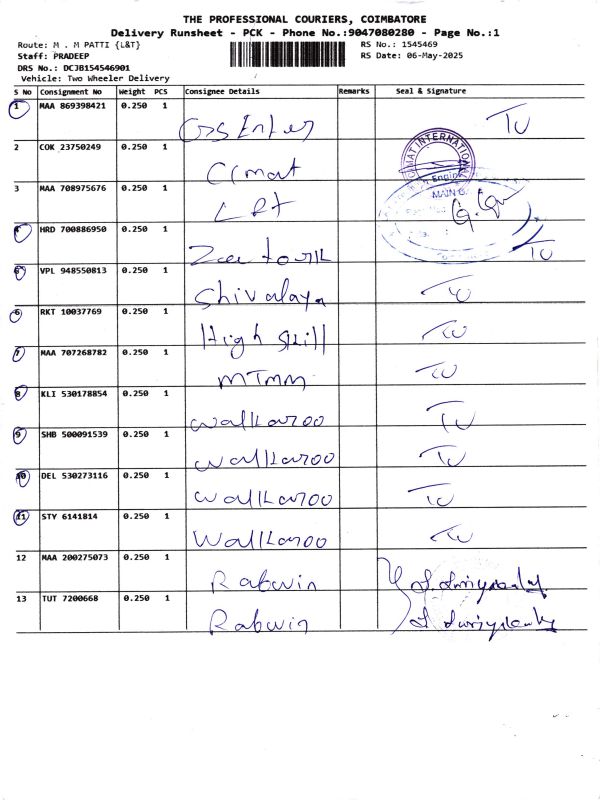 THE PROFESSIONAL COURIERS, COIMBATORE
Delivery Runsheet - PCK - Phone No.:9047080280 - Page No.:1
Route: M . M PATTI {L&T} RS No.: 1545469
Staff: PRADEEP RS Date: 06-May-2025
DRS No.: DCJB154546901
Vehicle: Two Wheeler Delivery
S No Consignment No Weight PCS Consignee Details Remarks Seal & Signature
1 MAA 869398421 0.250 1
2 COK 23750249 0.250 1 Cimat
3 MAA 708975676 0.250 1 L&T
4 HRD 700886950 0.250 1
5 VPL 948550813 0.250 1 Shivalaya
6 RKT 10037769 0.250 1 High Skill
7 MAA 707268782 0.250 1 MTMM
8 KLI 530178854 0.250 1 Walkaroo
9 SHB 500091539 0.250 1 Walkaroo
10 DEL 530273116 0.250 1 Walkaroo
11 STY 6141814 0.250 1 Walkaroo
12 MAA 200275073 0.250 1 Rabwin
13 TUT 7200668 0.250 1 Rabwin